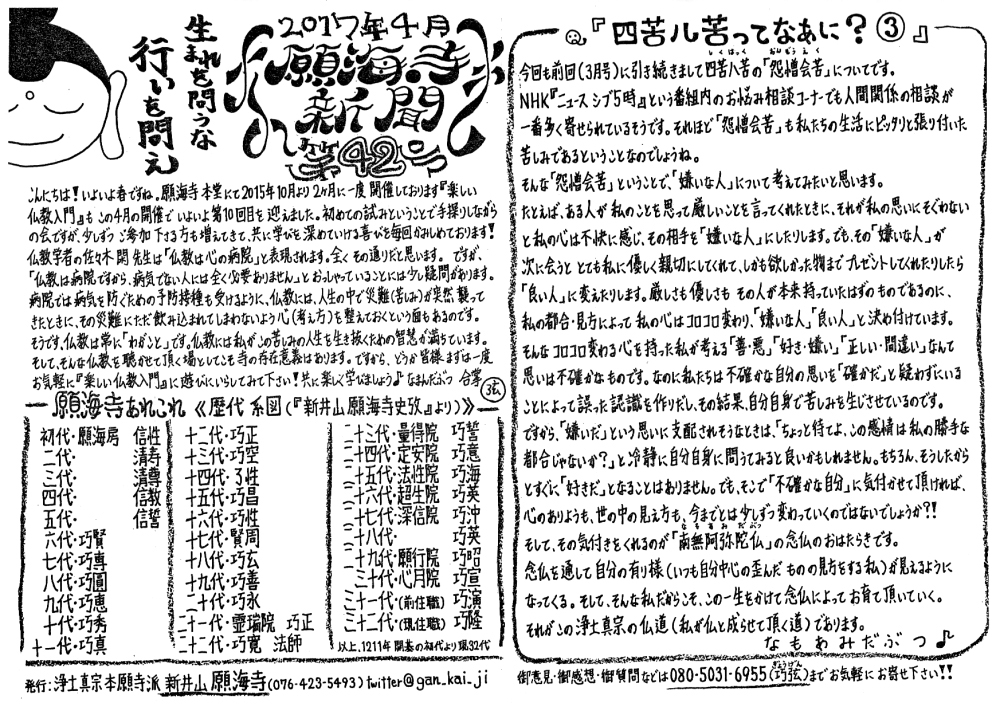 2017年4月
願海寺
新聞
第42号
生まれを問うな
行いを問え
こんにちは!いよいよ春ですね。願海寺本堂にて2015年10月より2ヶ月に一度開催しております『楽しい
仏教入門』もこの4月の開催でいよいよ第10回目を迎えました。初めての試みということで手探りしながら
の会ですが、少しずつご参加下さる方も増えてきて、共に学びを深めていける喜びを毎回かみしめております!
仏教学者の佐々木閑先生は「仏教は心の病院」と表現されます。全くその通りだと思います。ですが、
「仏教は病院ですから、病気でない人には全く必要ありません」とおっしゃっていることには少し疑問があります。
病院では病気を防ぐための予防接種も受けるように、仏教には、人生の中で災難(苦しみ)が突然襲って
きたときに、その災難にただ飲み込まれてしまわないよう心(考え方)を整えておくという面もあるのです。
そうです、仏教は常に「わがこと」です。仏教には私がこの苦しみの人生を生き抜くための智慧が満ちています。
そして、そんな仏教を聴かせて頂く場としてこそ寺の存在意義はあります。ですから、どうか皆様まずは一度
お気軽に『楽しい仏教入門』に遊びにいらしてみて下さい!共に楽しく学びましょう♪なまんだぶつ 合掌
弦
願海寺あれこれ《歴代系図(『新井山願海寺史攷』より)》
初代・願海房 信性
二代・ 清寿
三代・ 清専
四代・ 信教
五代・ 信誓
六代・巧賢
七代・巧専
八代・巧圓
九代・巧恵
十代・巧秀
十一代・巧真
十二代・巧正
十三代・巧空
十四代・了性
十五代・巧昌
十六代・巧性
十七代・賢周
十八代・巧玄
十九代・巧善
二十代・巧永
二十一代・霊瑞院 巧正
二十二代・巧寛 法師
二十三代・量得院 巧誓
二十四代・定安院 巧意
二十五代・法性院 巧海
二十六代・超生院 巧英
二十七代・深信院 巧沖
二十八代・ 巧英
二十九代・願行院 巧昭
三十代・心月院 巧宣
三十一代・(前住職) 巧演
三十二代・(現住職) 巧隆
以上、1211年開基の初代より現32代
発行:浄土真宗本願寺派 新井山 願海寺(076-423-5493)twitter@gan_kai_ji
『四苦八苦ってなあに?③』
今回も前回(3月号)に引き続きまして四苦八苦の「怨憎会苦」についてです。
しくはっく おんぞうえく
NHK『ニュース シブ5時』という番組内のお悩み相談コーナーでも人間関係の相談が
一番多く寄せられているそうです。それほど「怨憎会苦」も私たちの生活にピッタリと張り付いた
苦しみであるということなのでしょうね。
そんな「怨憎会苦」ということで、「嫌いな人」について考えてみたいと思います。
たとえば、ある人が私のことを思って厳しいことを言ってくれたときに、それが私の思いにそぐわない
と私の心は不快に感じ、その相手を「嫌いな人」にしたりします。でも、その「嫌いな人」が
次に会うととても私に優しく親切にしてくれて、しかも欲しかった物までプレゼントしてくれたりしたら
「良い人」に変えたりします。厳しさも優しさもその人が本来持っていたはずのものであるのに、
私の都合・見方によって私の心はコロコロ変わり、「嫌いな人」「良い人」と決め付けています。
そんなコロコロ変わる心を持った私が考える「善・悪」「好き・嫌い」「正しい・間違い」なんて
思いは不確かなものです。なのに私たちは不確かな自分の思いを「確かだ」と疑わずにいる
ことによって誤った認識を作りだし、その結果、自分自身で苦しみを生じさせているのです。
ですから、「嫌いだ」という思いに支配されそうなときは、「ちょっと待てよ、この感情は私の勝手な
都合じゃないか?」と冷静に自分自身に問うてみると良いかもしれません。もちろん、そうしたから
とすぐに「好きだ」となることはありません。でも、そこで「不確かな自分」に気付かせて頂ければ、
心のありようも、世の中の見え方も、今までとは少しずつ変わっていくのではないでしょうか?!
そして、その気付きをくれるのが「南無阿弥陀仏」の念仏のおはたらきです。
なもあみだぶつ
念仏を通して自分の有り様(いつも自分中心の歪んだものの見方をする私)が見えるように
なってくる。そして、そんな私だからこそ、この一生をかけて念仏によってお育て頂いていく。
それがこの浄土真宗の仏道(私が仏と成らせて頂く道)であります。
なもあみだぶつ♪
御意見・御感想・御質問などは080-5031-6955(巧弦)までお気軽にお寄せ下さい!!